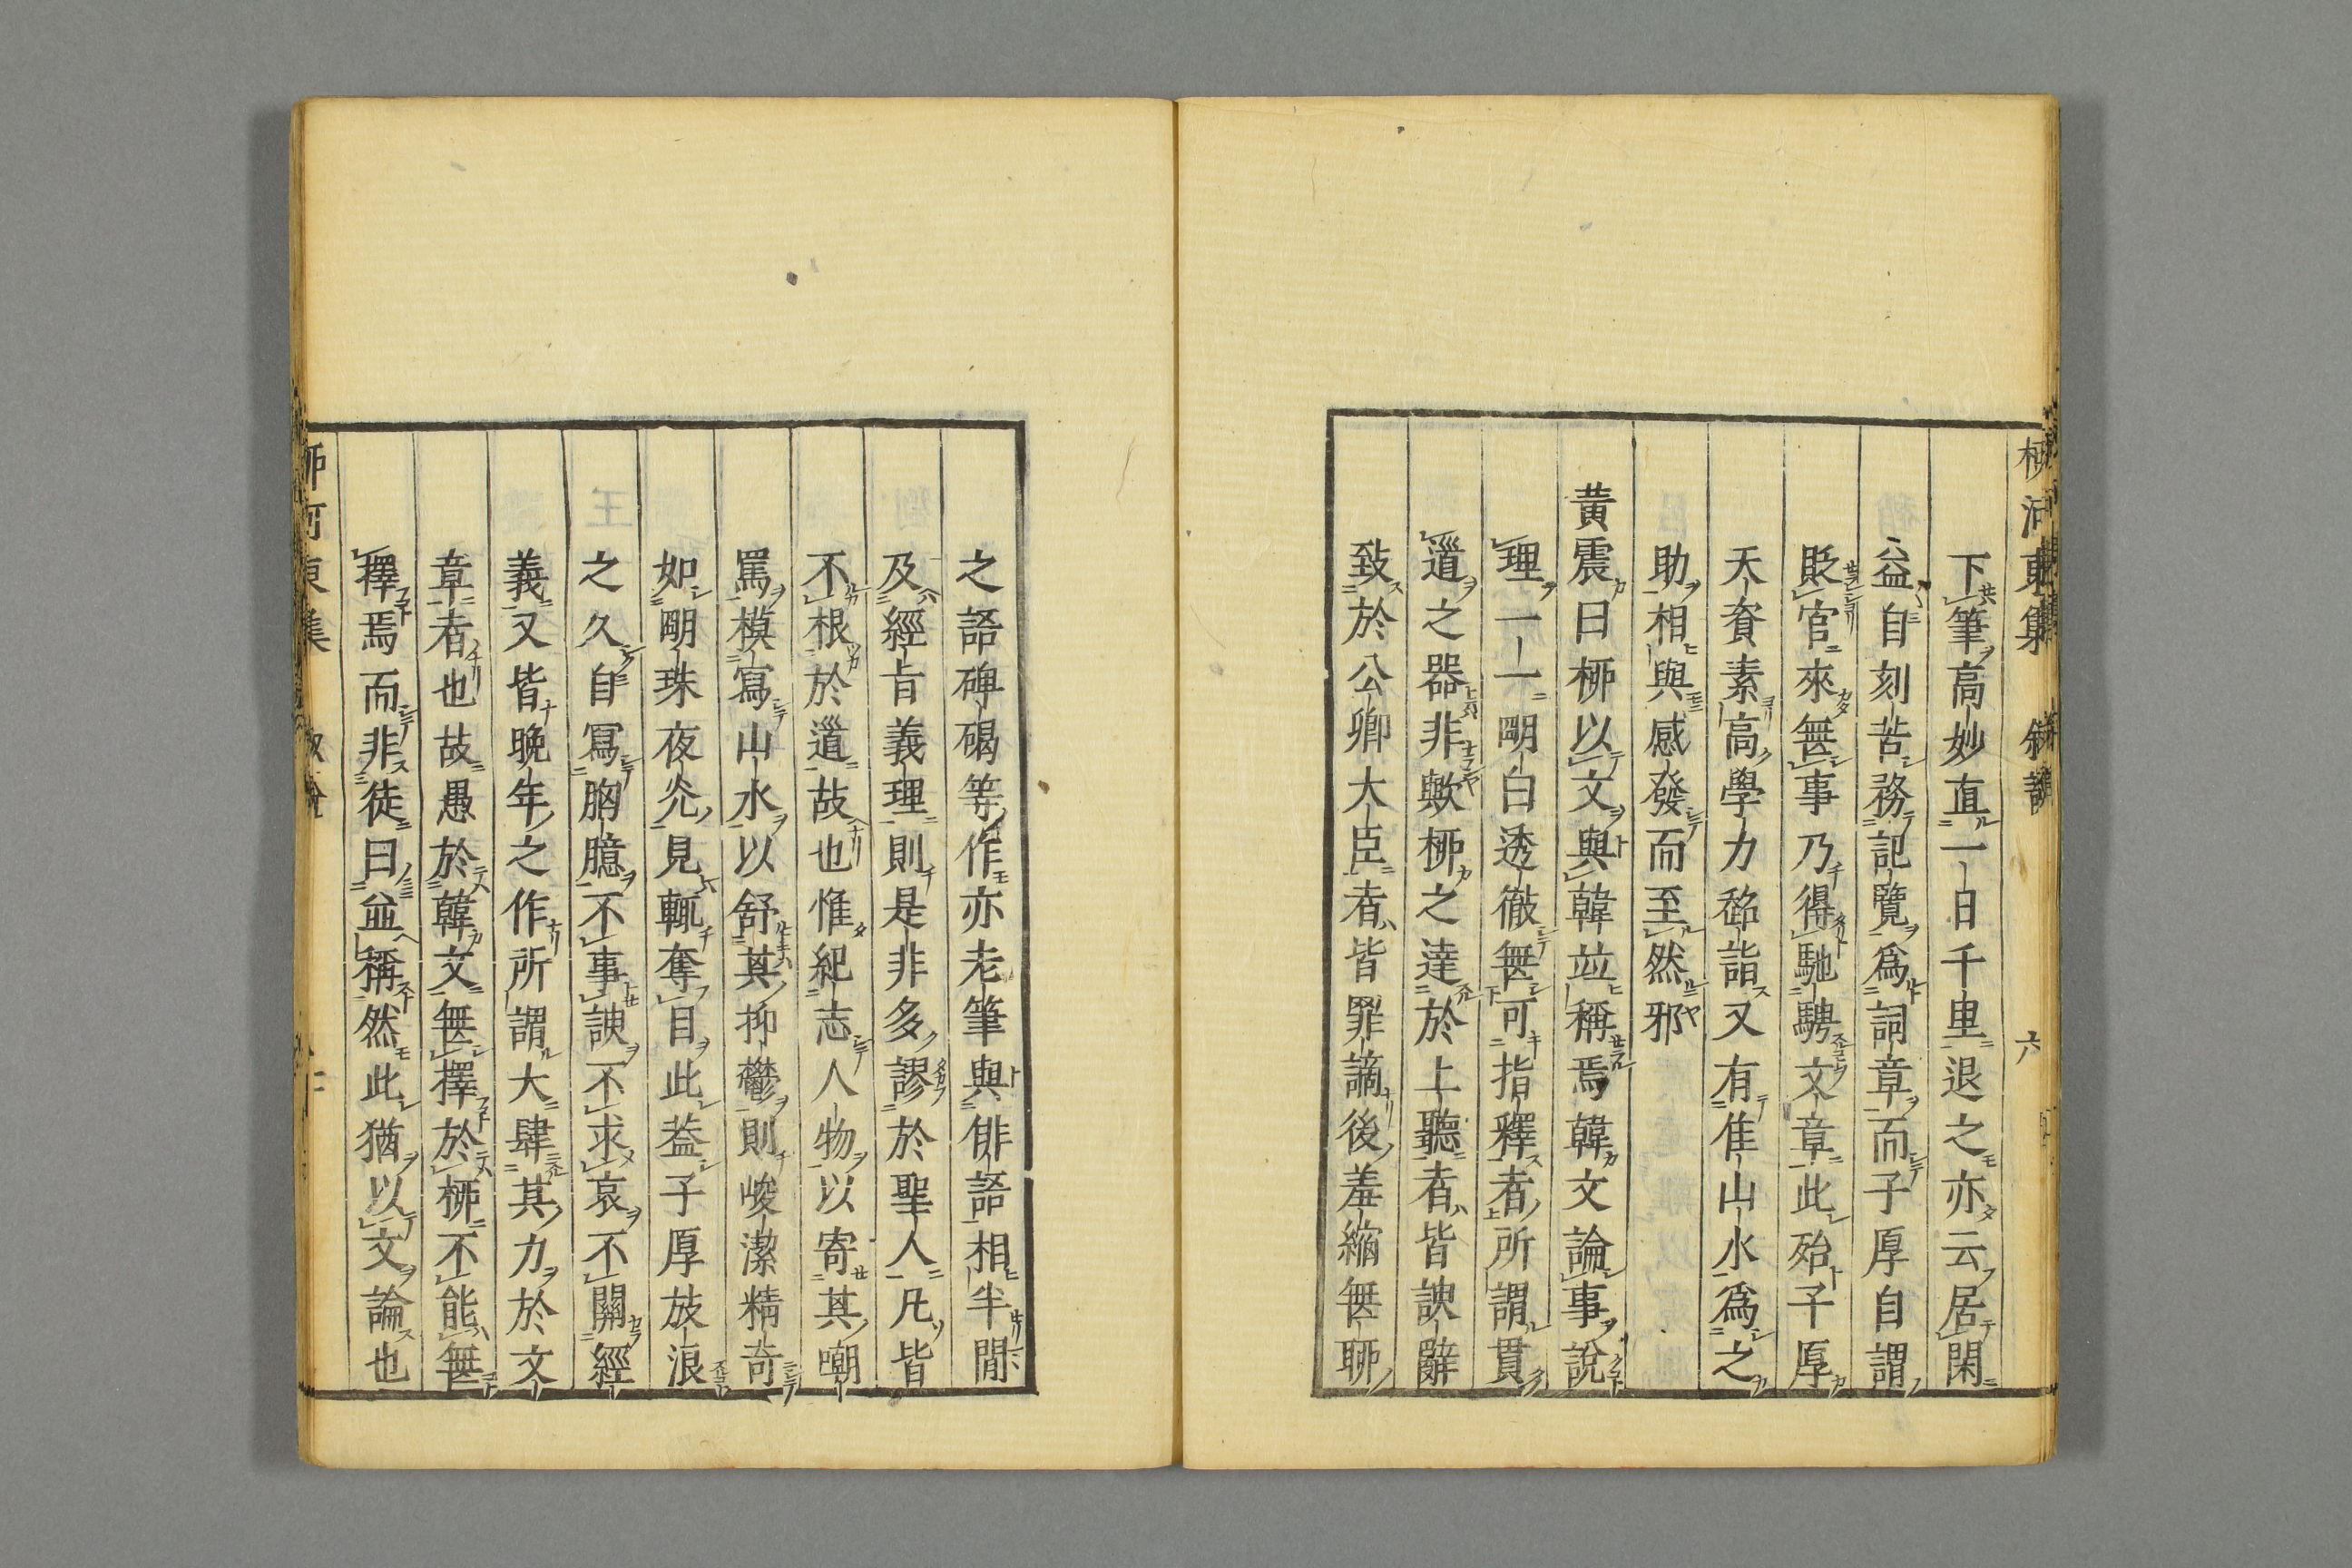 柳河東集 叙說 六
下筆高妙直一日千里退之亦云居閑
益自刻苦務記覽爲詞章而子厚自謂
貶官來無事乃得馳騁文章此殆子厚
天資素高學力超詣又有佳山水爲之
助相與感發而至然邪
黃震曰柳以文與韓竝稱焉韓文論事說
理一一明白透徹無可指釋者所謂貫
道之器非歟柳之達於上聽者皆諛辭
致於公卿大臣者皆罪謫後羞縮無聊
之語碑碣等作亦老筆與俳語相半間
及經旨義理則是非多謬於聖人凡皆
不根於道故也惟紀志人物以寄其嘲
罵模寫山水以舒其抑鬱則峻潔精奇
如明珠夜光見輒奪目此蓋子厚放浪
之久自寫胸臆不事諛不求哀不關經
義又皆晩年之作所謂大肆其力於文
章者也故愚於韓文無擇於柳不能無
擇焉而非徒曰竝稱然此猶以文論也
柳河東集